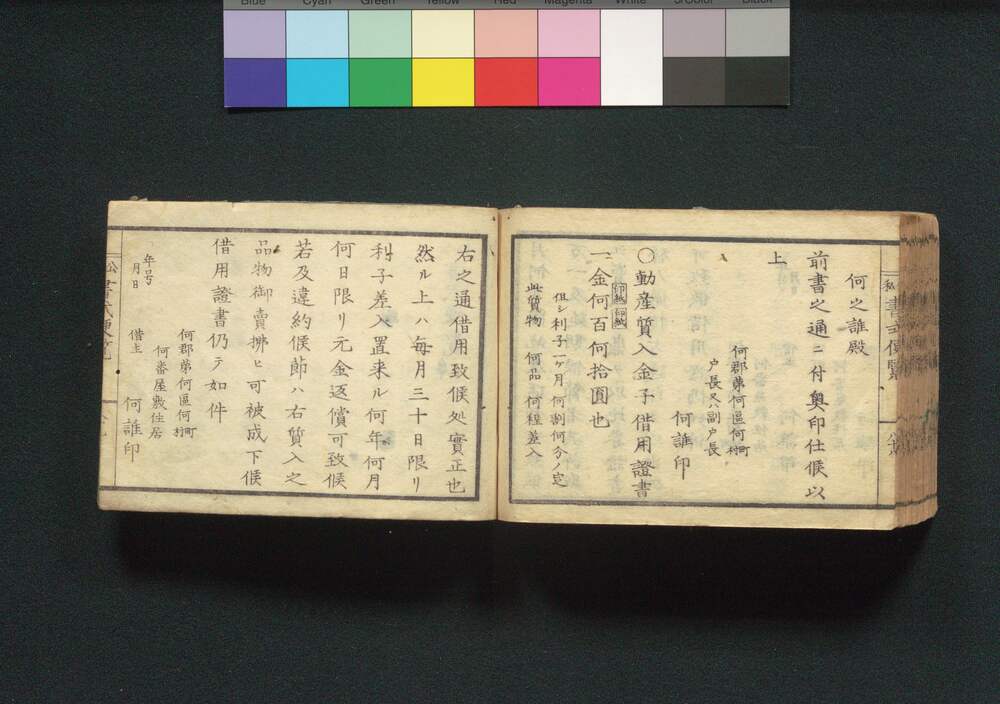 Blue Cyan Green Yellow Red Magenta White 3/Color Black
何之誰殿
前書之通ニ付奥印仕候以
上
何郡第何區何町村
戸長又ハ副戸長
何誰印
〇動産質入金子借用證書
一金何百何拾圓也
但シ利子一ヶ月何割何分ノ定
此質物 何品 何程差入
右之通借用致候処實正也
然ル上ハ毎月三十日限リ
利子差入置来ル何年何月
何日限リ元金返償可致候
若及違約候節ハ右質入之
品物御賣拂ヒ可被成下候
借用證書仍テ如件
何郡第何區何町村
何番屋敷住居
年号
月日
借主 何誰印